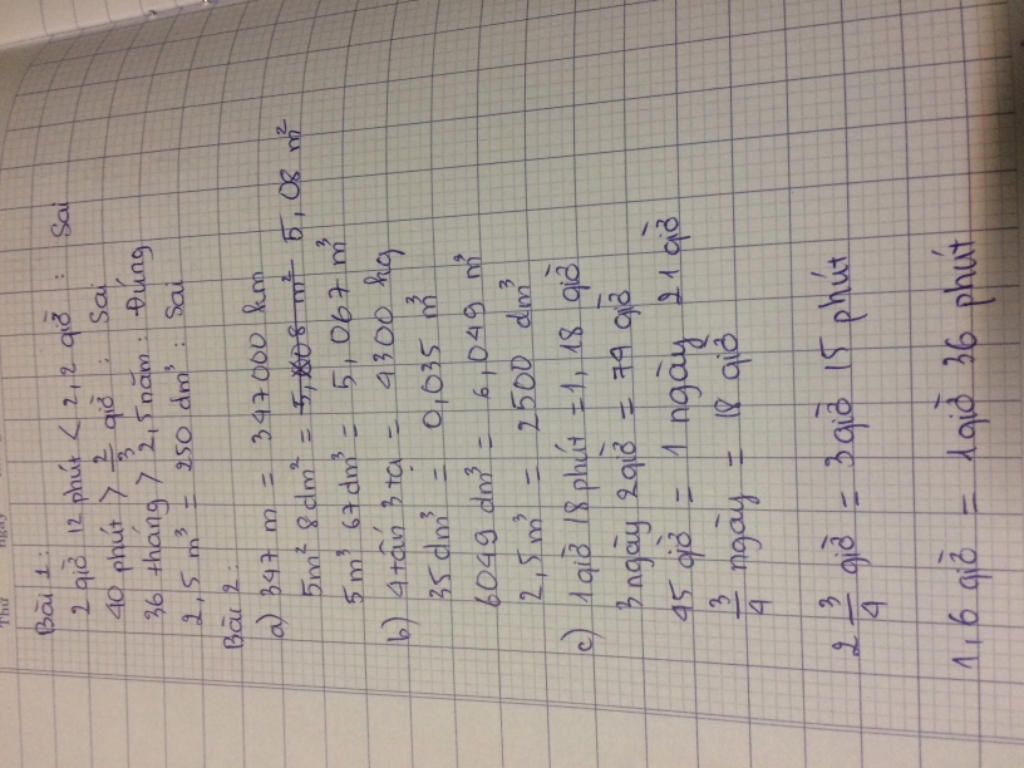 Bài 1:
2 giờ 12 phút < 2,2 giờ : Sai
40 phút > 2/3 giờ : Sai
36 tháng > 2,5 năm : Đúng
2,5 m³ = 250 dm³ : Sai
Bài 2:
a) 347 m = 347000 km
5m² 8dm² = 5,008 m² 5,08 m²
5m³ 67dm³ = 5,067 m³
b) 4 tấn 3 tạ = 4300 kg
35 dm³ = 0,035 m³
6049 dm³ = 6,049 m³
2,5 m³ = 2500 dm³
c) 1 giờ 18 phút = 1,18 giờ
3 ngày 2 giờ = 74 giờ
45 giờ = 1 ngày 21 giờ
3/4 ngày = 18 giờ
2 3/4 giờ = 3 giờ 15 phút
1,6 giờ = 1 giờ 36 phút